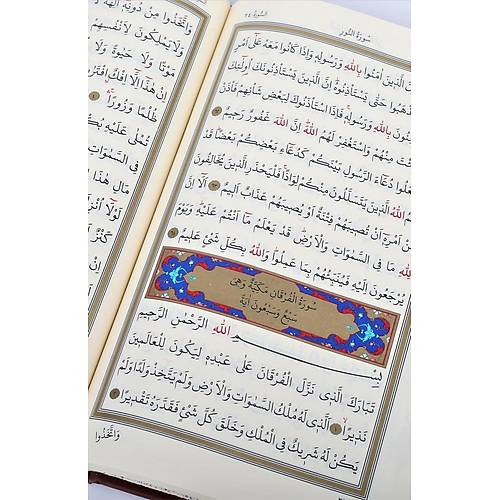 سُورَةُ النُّورِ
اَلسُّورَةُ ٢٤
الَّذِينَ اٰمَنُوا بِاللّٰهِ وَرَسُولِهِ وَاِذَا كَانُوا مَعَهُ عَلٰٓى اَمْرٍ
ذْهَبُوا حَتّٰى يَسْتَأْذِنُوهُ اِنَّ الَّذِينَ يَسْتَأْذِنُونَكَ اُولٰٓئِكَ
نُونَ بِاللّٰهِ وَرَسُولِهِ فَاِذَا اسْتَأْذَنُوكَ لِبَعْضِ شَأْنِهِمْ فَأْذَنْ
ئْتَ مِنْهُمْ وَاسْتَغْفِرْ لَهُمُ اللّٰهَ اِنَّ اللّٰهَ غَفُورٌ رَحِيمٌ
عَلُوا دُعَٓاءَ الرَّسُولِ بَيْنَكُمْ كَدُعَٓاءِ بَعْضِكُمْ بَعْضًا قَدْ
مُ اللّٰهُ الَّذِينَ يَتَسَلَّلُونَ مِنْكُمْ لِوَاذًا فَلْيَحْذَرِ الَّذِينَ يُخَالِفُونَ
نْ اَمْرِهِٓ اَنْ تُصِيبَهُمْ فِتْنَةٌ اَوْ يُصِيبَهُمْ عَذَابٌ اَلِيمٌ ٦٣ اَلَٓا اِنَّ
لِلّٰهِ مَا فِي السَّمٰوَاتِ وَالْاَرْضِ قَدْ يَعْلَمُ مَٓا اَنْتُمْ عَلَيْهِ وَيَوْمَ
يُرْجَعُونَ اِلَيْهِ فَيُنَبِّئُهُمْ بِمَا عَمِلُوا وَاللّٰهُ بِكُلِّ شَيْءٍ عَلِيمٌ
سُورَةُ الْفُرْقَانِ مَكِّيَّةٌ وَهِيَ
سَبْعٌ وَسَبْعُونَ اٰيَةً
بِسْمِ اللّٰهِ الرَّحْمٰنِ الرَّحِيمِ
تَبَارَكَ الَّذِي نَزَّلَ الْفُرْقَانَ عَلٰى عَبْدِهِ لِيَكُونَ لِلْعَالَمِينَ
نَذِيرًا ١ اَلَّذِي لَهُ مُلْكُ السَّمٰوَاتِ وَالْاَرْضِ وَلَمْ يَتَّخِذْ وَلَدًا وَلَمْ
يَكُنْ لَهُ شَرِيكٌ فِي الْمُلْكِ وَخَلَقَ كُلَّ شَيْءٍ فَقَدَّرَهُ تَقْدِيرًا ٢
وَاتَّخَذُوا
وَاتَّخَذُوا مِنْ دُونِهِٓ اٰلِهَةً
وَلَا يَمْلِكُونَ لِاَنْفُسِهِمْ
مَوْتًا وَلَا حَيٰوةً وَلَا
اِنْ هٰذَٓا اِلَّٓا اِفْكٌ افْتَرٰ
ظُلْمًا وَزُورًا ٤
تُمْلٰى عَلَيْهِ بُكْ
فِي السَّمٰوَاتِ
مَالِ هٰذَا
لَوْلَٓا اُنْزِلَ
كَنْزٌ